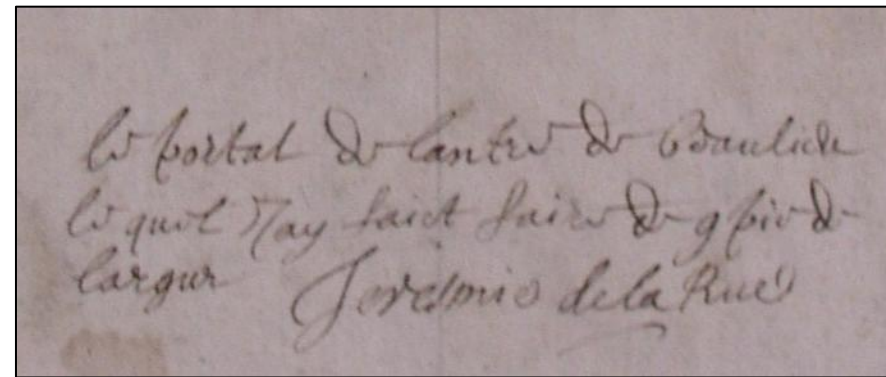 le portal de lantre de Beaulieu
le quel Jay faict faire de 9 pie de
largur Jeresmie de la Rue